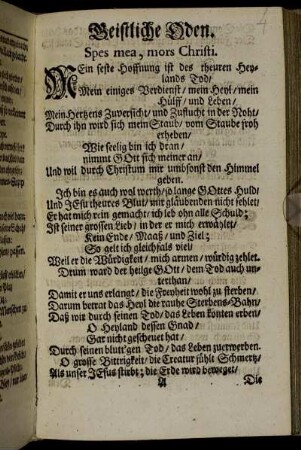 Geistliche Oden.
Spes mea, mors Christi.
MEin feste Hoffnung ist des theuren Hey-
lands Tod/
Mein einiges Verdienst/ mein Heyl/ mein
Hülff/ und Leben/
Mein Hertzens Zuversicht/ und Zuflucht in der Noht/
Durch ihn wird sich mein Staub/ vom Staube froh
erheben/
Wie seelig bin ich dran/
nimmt GOtt sich meiner an/
Und wil durch Christum mir umbsonst den Himmel
geben.
Ich bin es auch wol werth/ so lange GOttes Huld/
Und JEsu theures Blut/ mir gläubenden nicht fehlet/
Er hat mich rein gemacht/ ich leb ohn alle Schuld;
Ist seiner grossen Lieb/ in der er mich erwählet/
Kein Ende/ Maaß/ und Ziel;
So gelt ich gleichfals viel/
Weil er die Würdigkeit/ mich armen/ würdig zehlet.
Drum ward der heilge GOtt/ dem Tod auch un-
terthan/
Damit er uns erlangt/ die Freyheit wohl zu sterben/
Darum betrat das Heil die rauhe Sterbens-Bahn/
Daß wir durch seinen Tod/ das Leben konten erben/
O Heyland dessen Gnad/
Gar nicht gescheuet hat/
Durch seinen blutt'gen Tod/ das Leben zuerwerben.
O grosse Bittrigkeit/ die Creatur fühlt Schmertz/
Als unser JEsus stirbt; die Erde wird beweget/
A Die